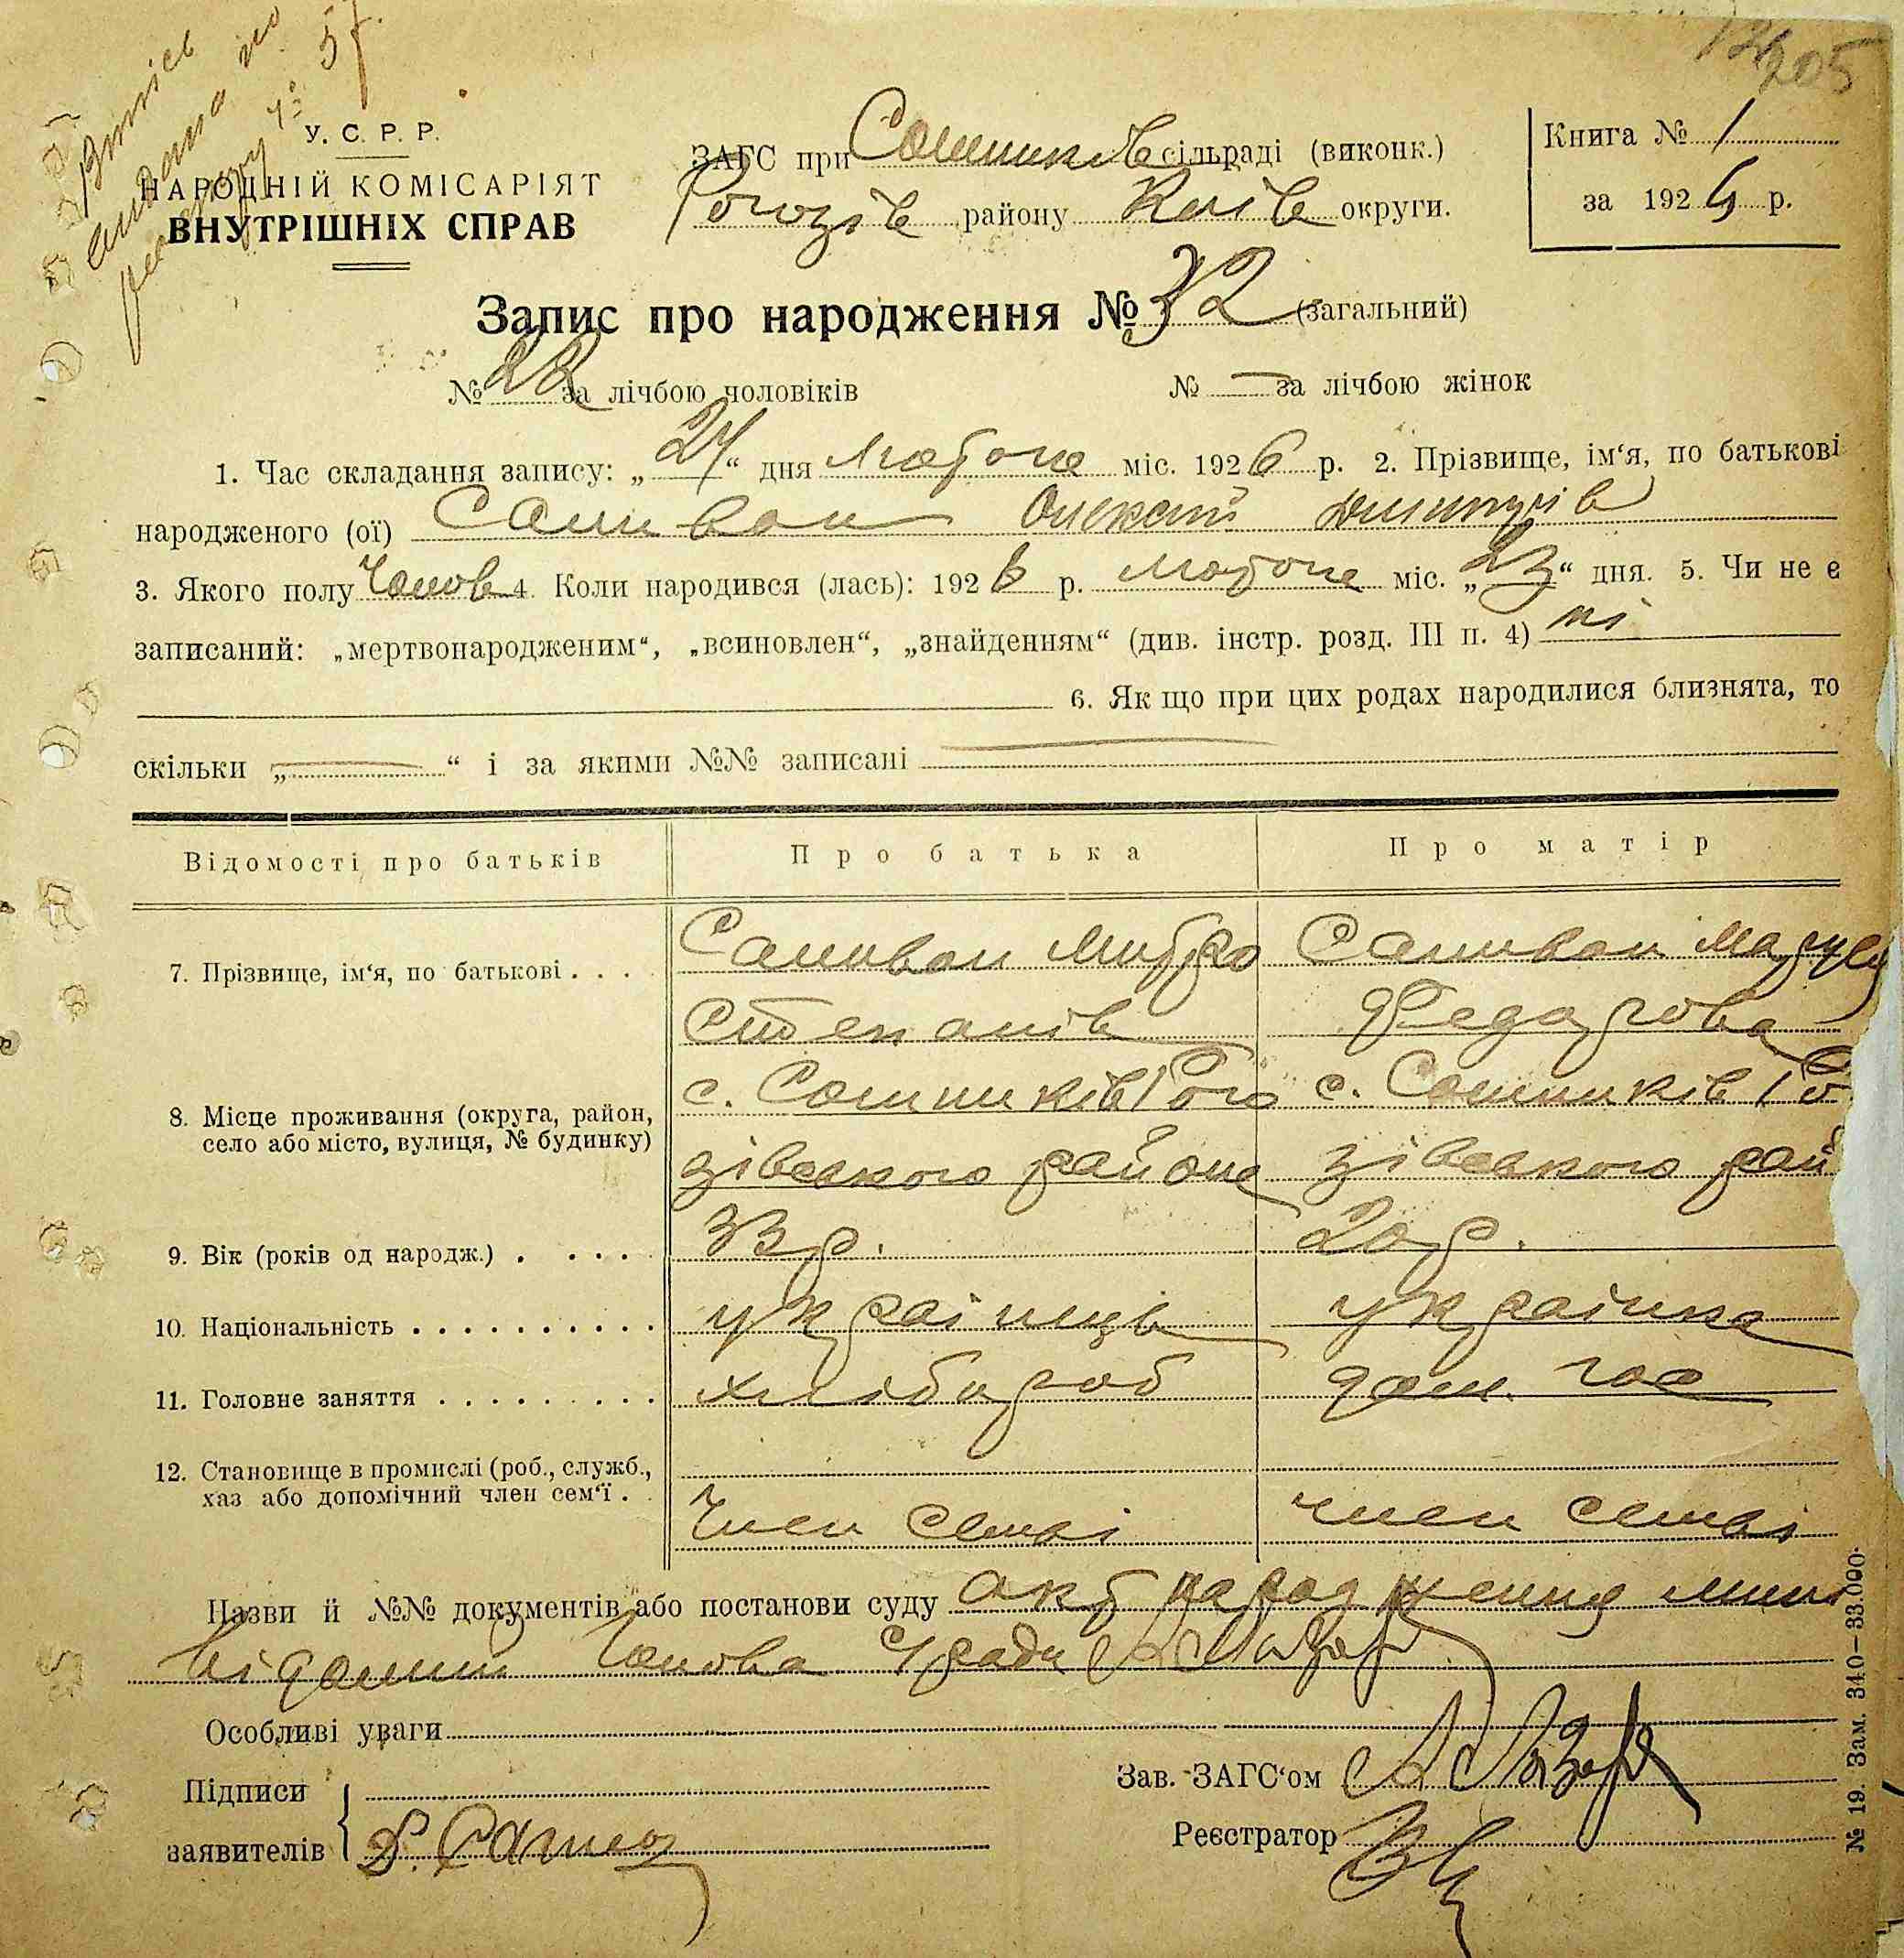 205
У. С. Р. Р.
НАРОДНІЙ КОМІСАРІЯТ
ВНУТРІШНІХ СПРАВ
ЗАГС при Сошників сільраді (виконк.)
Рогозів району Київ округи.
Книга № 1
за 1926 р.
Запис про народження № 32 (загальний)
№ 22 за лічбою чоловіків
№ — за лічбою жінок
1. Час складання запису: „24“ дня міс. 1926 р. 2. Прізвище, ім‘я, по батькові
народженого (ої) Саливон Олексій Дмитрів
3. Якого полу Чолов 4. Коли народився (лась): 1926 р. міс. „23“ дня. 5. Чи не є
записаний: „мертвонародженим“, „всиновлен“, „знайденням“ (див. інстр. розд. III п. 4) ні
6. Як що при цих родах народилися близнята, то
скільки „—“ і за якими №№ записані —
Відомості про батьків
Про батька
Про матір
7. Прізвище, ім‘я, по батькові . . .
Саливон Митро
Саливон
Степанів
Федорова
8. Місце проживання (округа, район,
село або місто, вулиця, № будинку)
с. Сошників Рого
с. Сошників Ро
зівського района
зівського рай
9. Вік (років од народж.) . . . . .
33 р.
20 р.
10. Національність . . . . . . . . . .
українець
українка
11. Головне заняття . . . . . . . . .
хлібороб
дом. гос
12. Становище в промислі (роб., служб.,
хаз або допомічний член сем‘ї . .
член семьі
член семьі
Назви й №№ документів або постанови суду акт народження мині
відомий Голова С/ради
Особливі уваги
Підписи
заявителів
Зав. ЗАГС‘ом
Реєстратор
№ 19. Зам. 340—33.000.